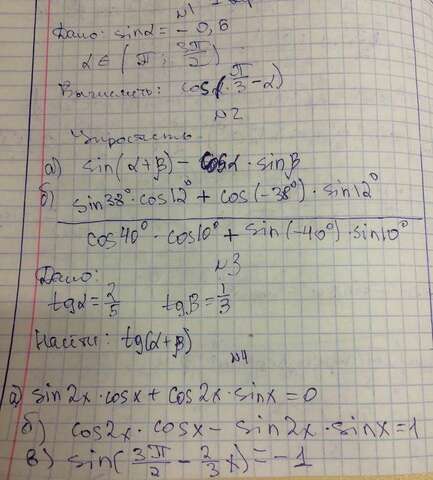 №1
Дано: sinα = -0,6
α ∈ (π; 3π/2)
Вычислить: cos(π/3 - α)
№2
Упростить
а) sin(α+β) - cosα · sinβ
б) sin38° · cos12° + cos(-38°) · sin12°
cos40° · cos10° + sin(-40°) · sin10°
№3
Дано:
tgα = 2/5 tgβ = 1/3
Найти: tg(α+β)
№4
а) sin2x · cosx + cos2x · sinx = 0
б) cos2x · cosx - sin2x · sinx = 1
в) sin(3π/2 - 2/3 x) = -1